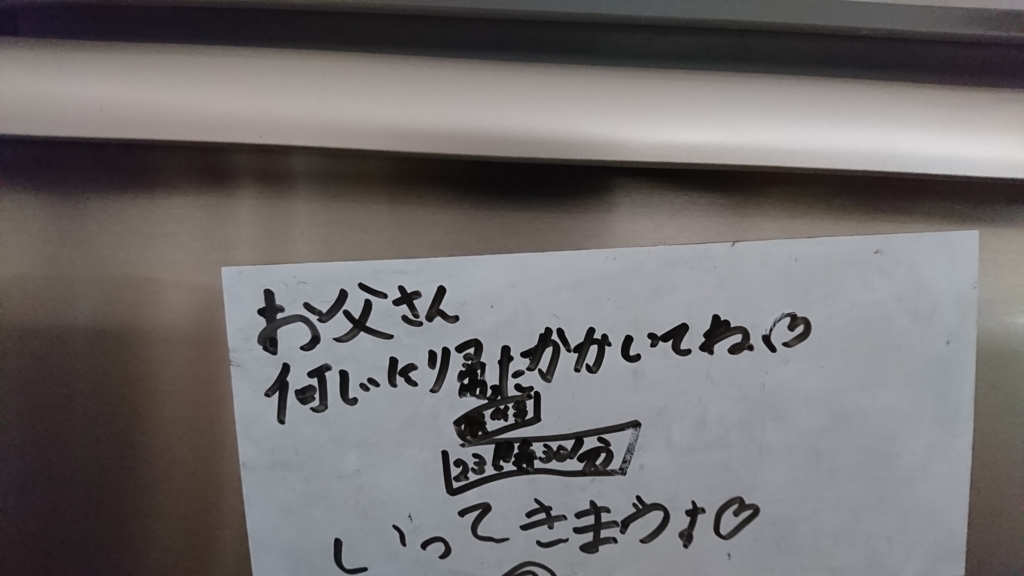 お父さん
何じにり帰たかかいてね♡
23時30分
いってきまうす♡